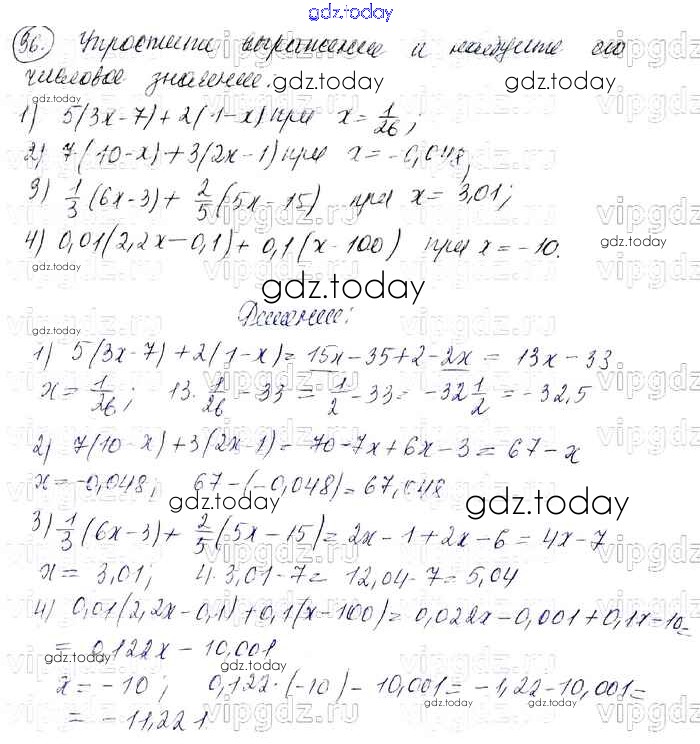 gdz.today
36. Упростите выражение и найдите его
числовое значение.
1) 5(3x-7)+2(1-x) при x=1/26;
2) 7(10-x)+3(2x-1) при x=-0,048;
3) 1/3(6x-3)+2/5(5x-15) при x=3,01;
4) 0,01(2,2x-0,1)+0,1(x-100) при x=-10.
gdz.today
Решение:
1) 5(3x-7)+2(1-x)=15x-35+2-2x=13x-33
x=1/26; 13·1/26-33=1/2-33=-32 1/2=-32,5
2) 7(10-x)+3(2x-1)=70-7x+6x-3=67-x
x=-0,048; 67-(-0,048)=67,048
gdz.today gdz.today
3) 1/3(6x-3)+2/5(5x-15)=2x-1+2x-6=4x-7
x=3,01; 4·3,01-7=12,04-7=5,04
4) 0,01(2,2x-0,1)+0,1(x-100)=0,022x-0,001+0,1x-10=
=0,122x-10,001
gdz.today gdz.today
x=-10; 0,122·(-10)-10,001=-1,22-10,001=
=-11,221